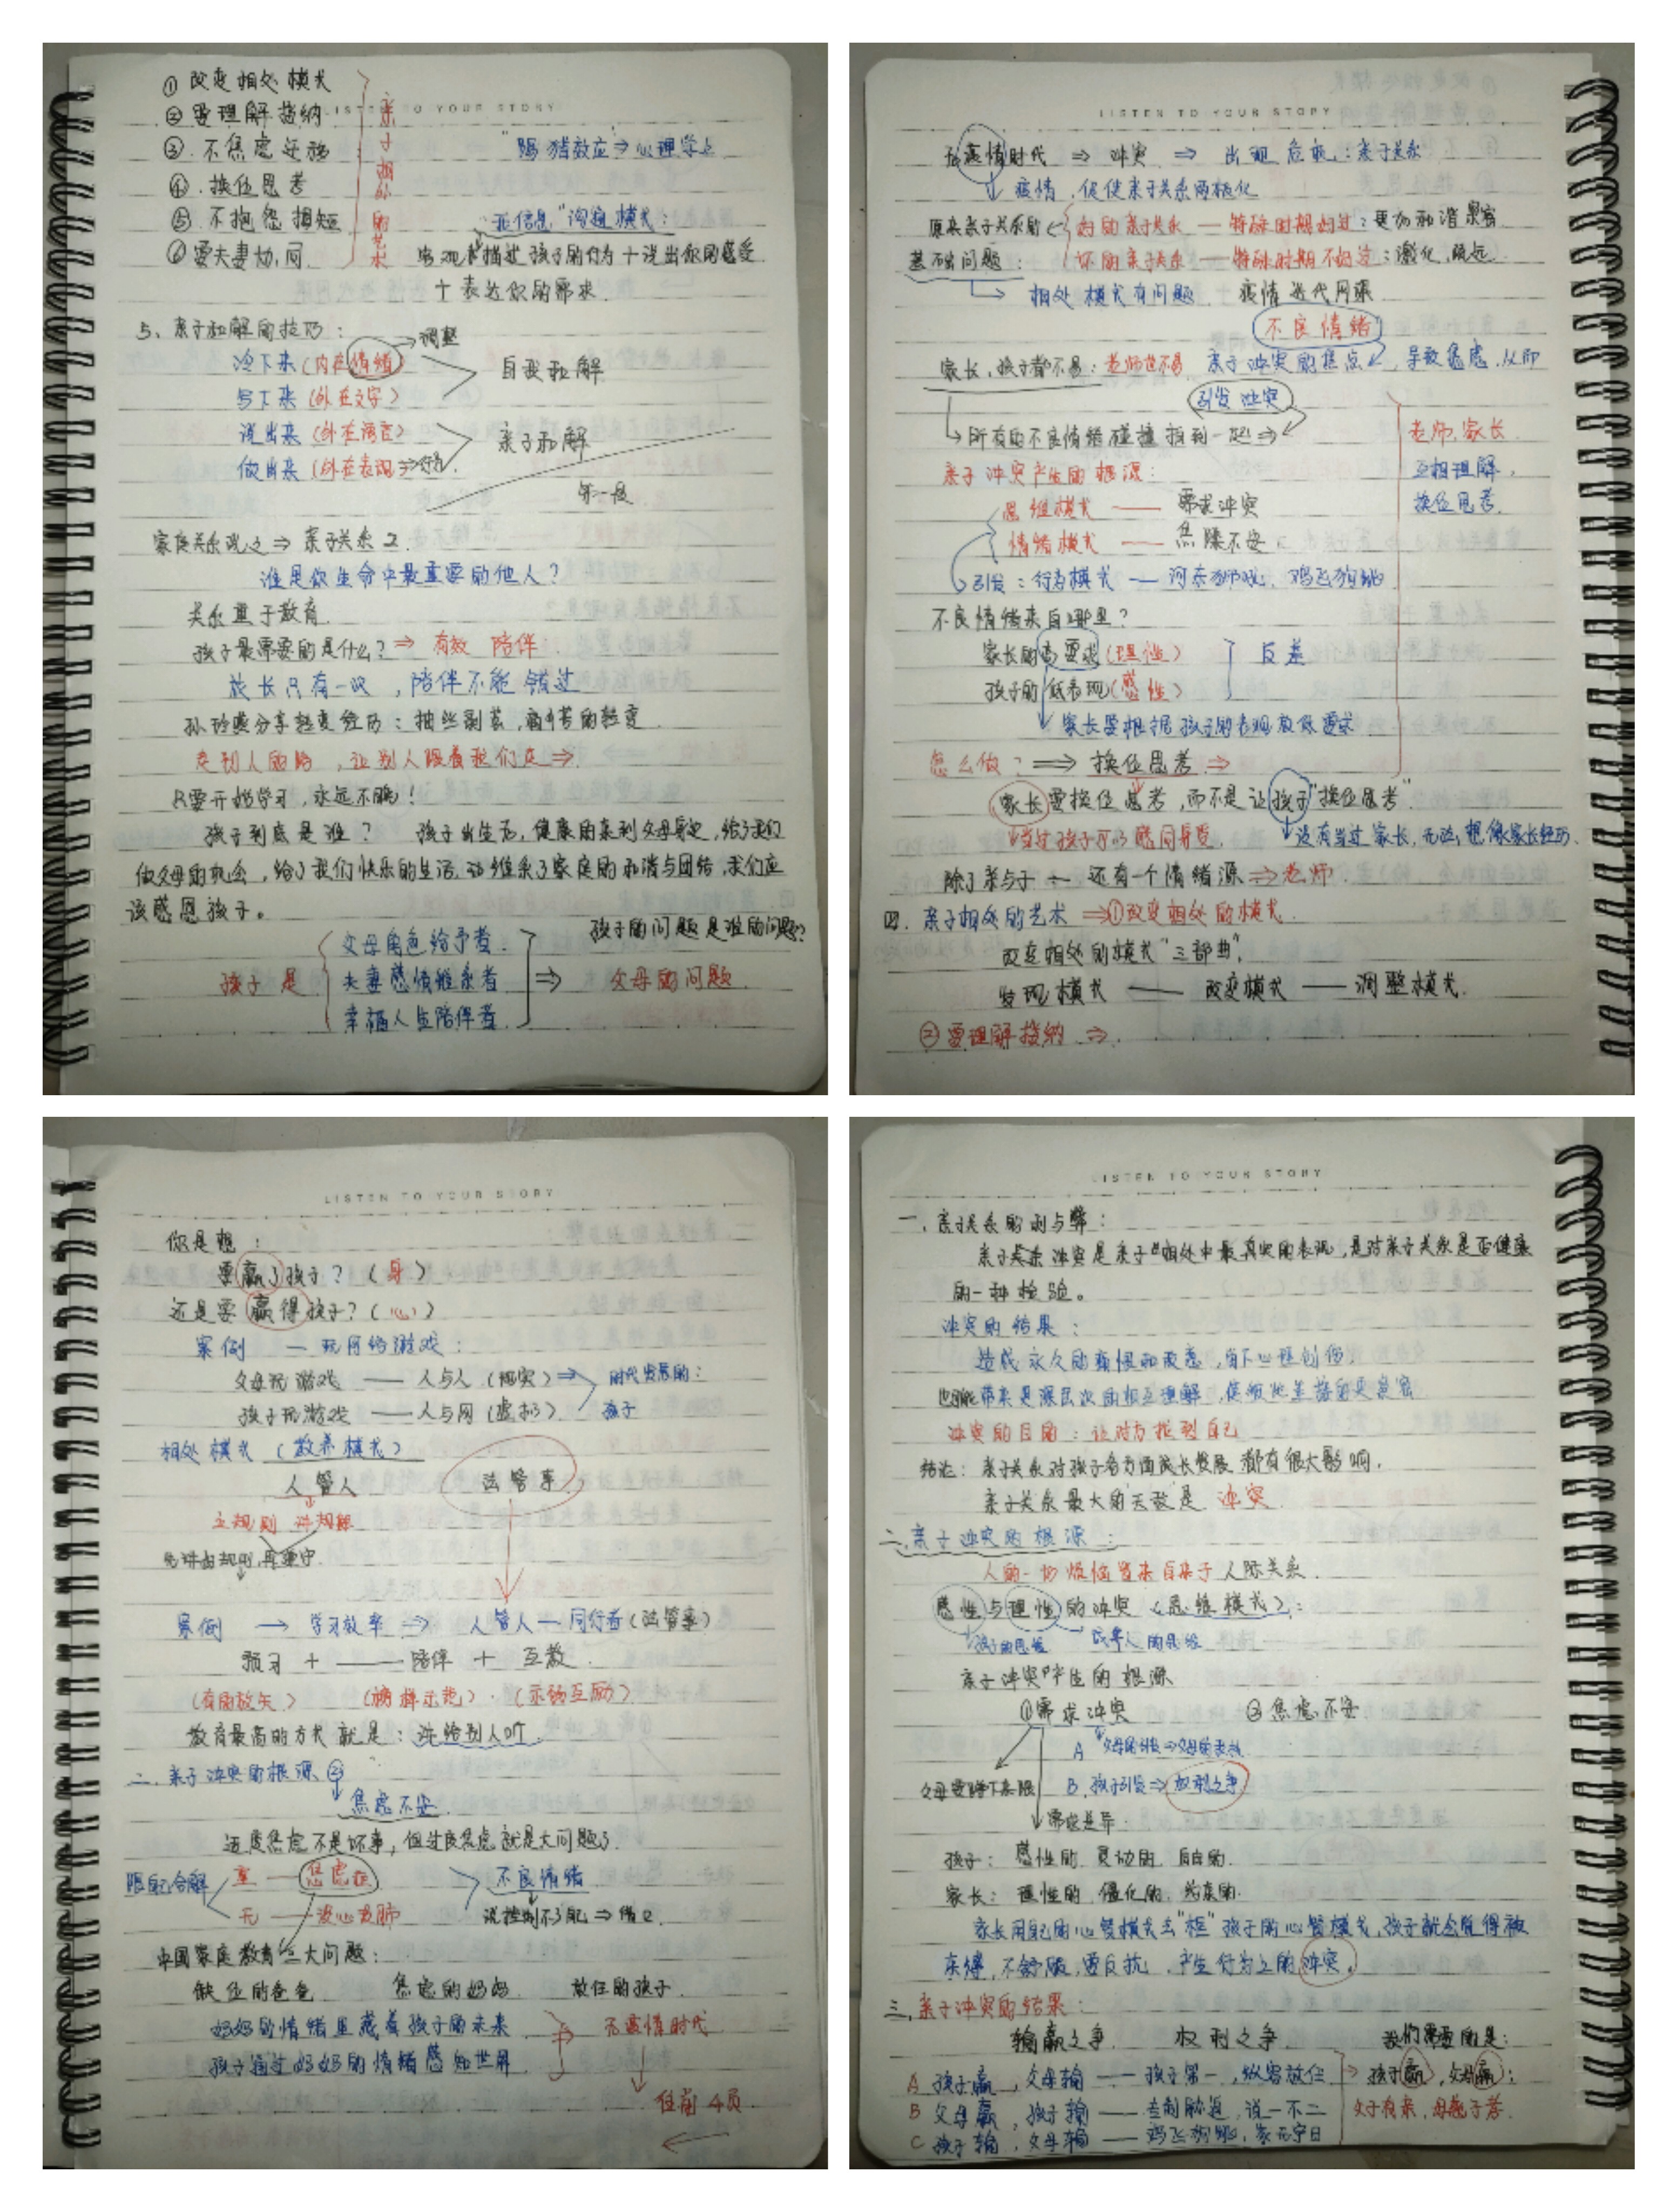 ① 改变相处模式
② 要理解接纳
③. 不焦虑迁移
④. 换位思考
⑤. 不抱怨揭短
⑥ 要夫妻协同.
亲子相处的艺术
LISTEN TO YOUR STORY
"踢猫效应⇒心理学上
"我信息"沟通模式:
客观描述孩子的行为+说出你的感受
+表达你的需求.
5、亲子和解的技巧:
冷下来(内在情绪)→调整
写下来(外在文字)
自我和解
说出来(外在语言)
做出来(外在表现⇒行为).
亲子和解
第一段
家庭关系观之⇒亲子关系2.
谁是你生命中最重要的他人?
关系重于教育.
孩子最需要的是什么?⇒有效陪伴.
成长只有一次,陪伴不能错过
分享蜕变经历:抽丝剥茧,痛苦的蜕变.
走别人的路,让别人跟着我们走⇒.
只要开始学习,永远不晚!
孩子到底是谁? 孩子出生后,健康的来到父母身边,给了我们
做父母的机会,给了我们快乐的生活.还维系了家庭的和谐与团结,我们应
该感恩孩子。
孩子是
父母角色给予者.
夫妻感情维系者
幸福人生陪伴者.
⇒
孩子的问题是谁的问题?
父母的问题.
LISTEN TO YOUR STORY
后疫情时代⇒冲突⇒出现危机:亲子关系
疫情,促使亲子关系两极化
原来亲子关系的
好的亲子关系—特殊时期的过:更加和谐亲密
基础问题:
坏的亲子关系—特殊时期不好过:激化,疏远.
相处模式有问题 疫情
不良情绪
家长,孩子都不易:老师也不易 亲子冲突的焦点,导致焦虑,从而
引发冲突
所有的不良情绪碰撞报到一起⇒
老师,家长
互相理解,
换位思考.
亲子冲突产生的根源:
思维模式——需求冲突
情绪模式——焦躁不安
引发:行为模式—河东狮吼,鸡飞狗跳
不良情绪来自哪里?
家长的高要求(理性)
孩子的低表现(感性)
反差
家长要根据孩子的表现放低要求
怎么做?⇒换位思考⇒
家长要换位思考,而不是让孩子"换位思考".
当过孩子可以感同身受.
没有当过家长,无法想像家长经历.
除了亲与子—还有一个情绪源⇒老师.
四.亲子相处的艺术⇒①改变相处的模式.
改变相处的模式"三部曲".
发现模式——改变模式——调整模式.
②要理解接纳⇒.
LISTEN TO YOUR STORY
你是想:
要赢了孩子?(身)
还是要赢得孩子?(心)
案例 —玩网络游戏:
父母玩游戏——人与人(现实)⇒
孩子玩游戏——人与网(虚拟).
时代发展的:
孩子
相处模式(教养模式)
人管人
法管事
立规则 讲规矩
先讲出规则,再遵守.
案例→学习效率⇒人管人—同行者(法管事)
预习+——陪伴+互教.
(有的放矢) (榜样示范).(示弱互励).
教育最高的方式就是:讲给别人听.
二、亲子冲突的根源②
焦虑不安.
适度焦虑不是坏事,但过度焦虑就是大问题了.
跟自己和解
重—焦虑症
无——没心没肺
不良情绪
说控制不了自己⇒借口.
中国家庭教育三大问题:
缺位的爸爸 焦虑的妈妈 放任的孩子.
妈妈的情绪里藏着孩子的未来
孩子通过妈妈的情绪感知世界.
后疫情时代
往前4页.
LISTEN TO YOUR STORY
一.亲子关系的利与弊:
亲子关系冲突是亲子相处中最真实的表现,是对亲子关系是否健康
的一种检验。
冲突的结果:
造成永久的痛恨和敌意,留下心理创伤.
也能带来更深层次的相互理解,使彼此连接的更亲密
冲突的目的:让对方找到自己
结论:亲子关系对孩子各方面成长发展都有很大影响.
亲子关系最大的天敌是冲突.
二.亲子冲突的根源:
人的一切烦恼皆来自来于人际关系.
感性与理性的冲突(思维模式):
孩子的思维 成年人的思维
亲子冲突产生的根源
①需求冲突 ②焦虑不安
A
父母要蹲下来跟
B.孩子引发⇒权利之争
需求差异.
孩子:感性的.灵动的.自由的.
家长:理性的,僵化的,约束的.
家长用自己的心智模式去"框"孩子的心智模式,孩子就会觉得被
束缚,不舒服,要反抗.产生行为上的冲突.
三.亲子冲突的结果:
输赢之争 权利之争 我们需要的是:
A 孩子赢,父母输——孩子第一,纵容放任
B 父母赢,孩子输——专制胁迫,说一不二
C 孩子输,父母输——鸡飞狗跳,家无宁日
孩子赢,父母赢;
父子有亲,母慈子孝.